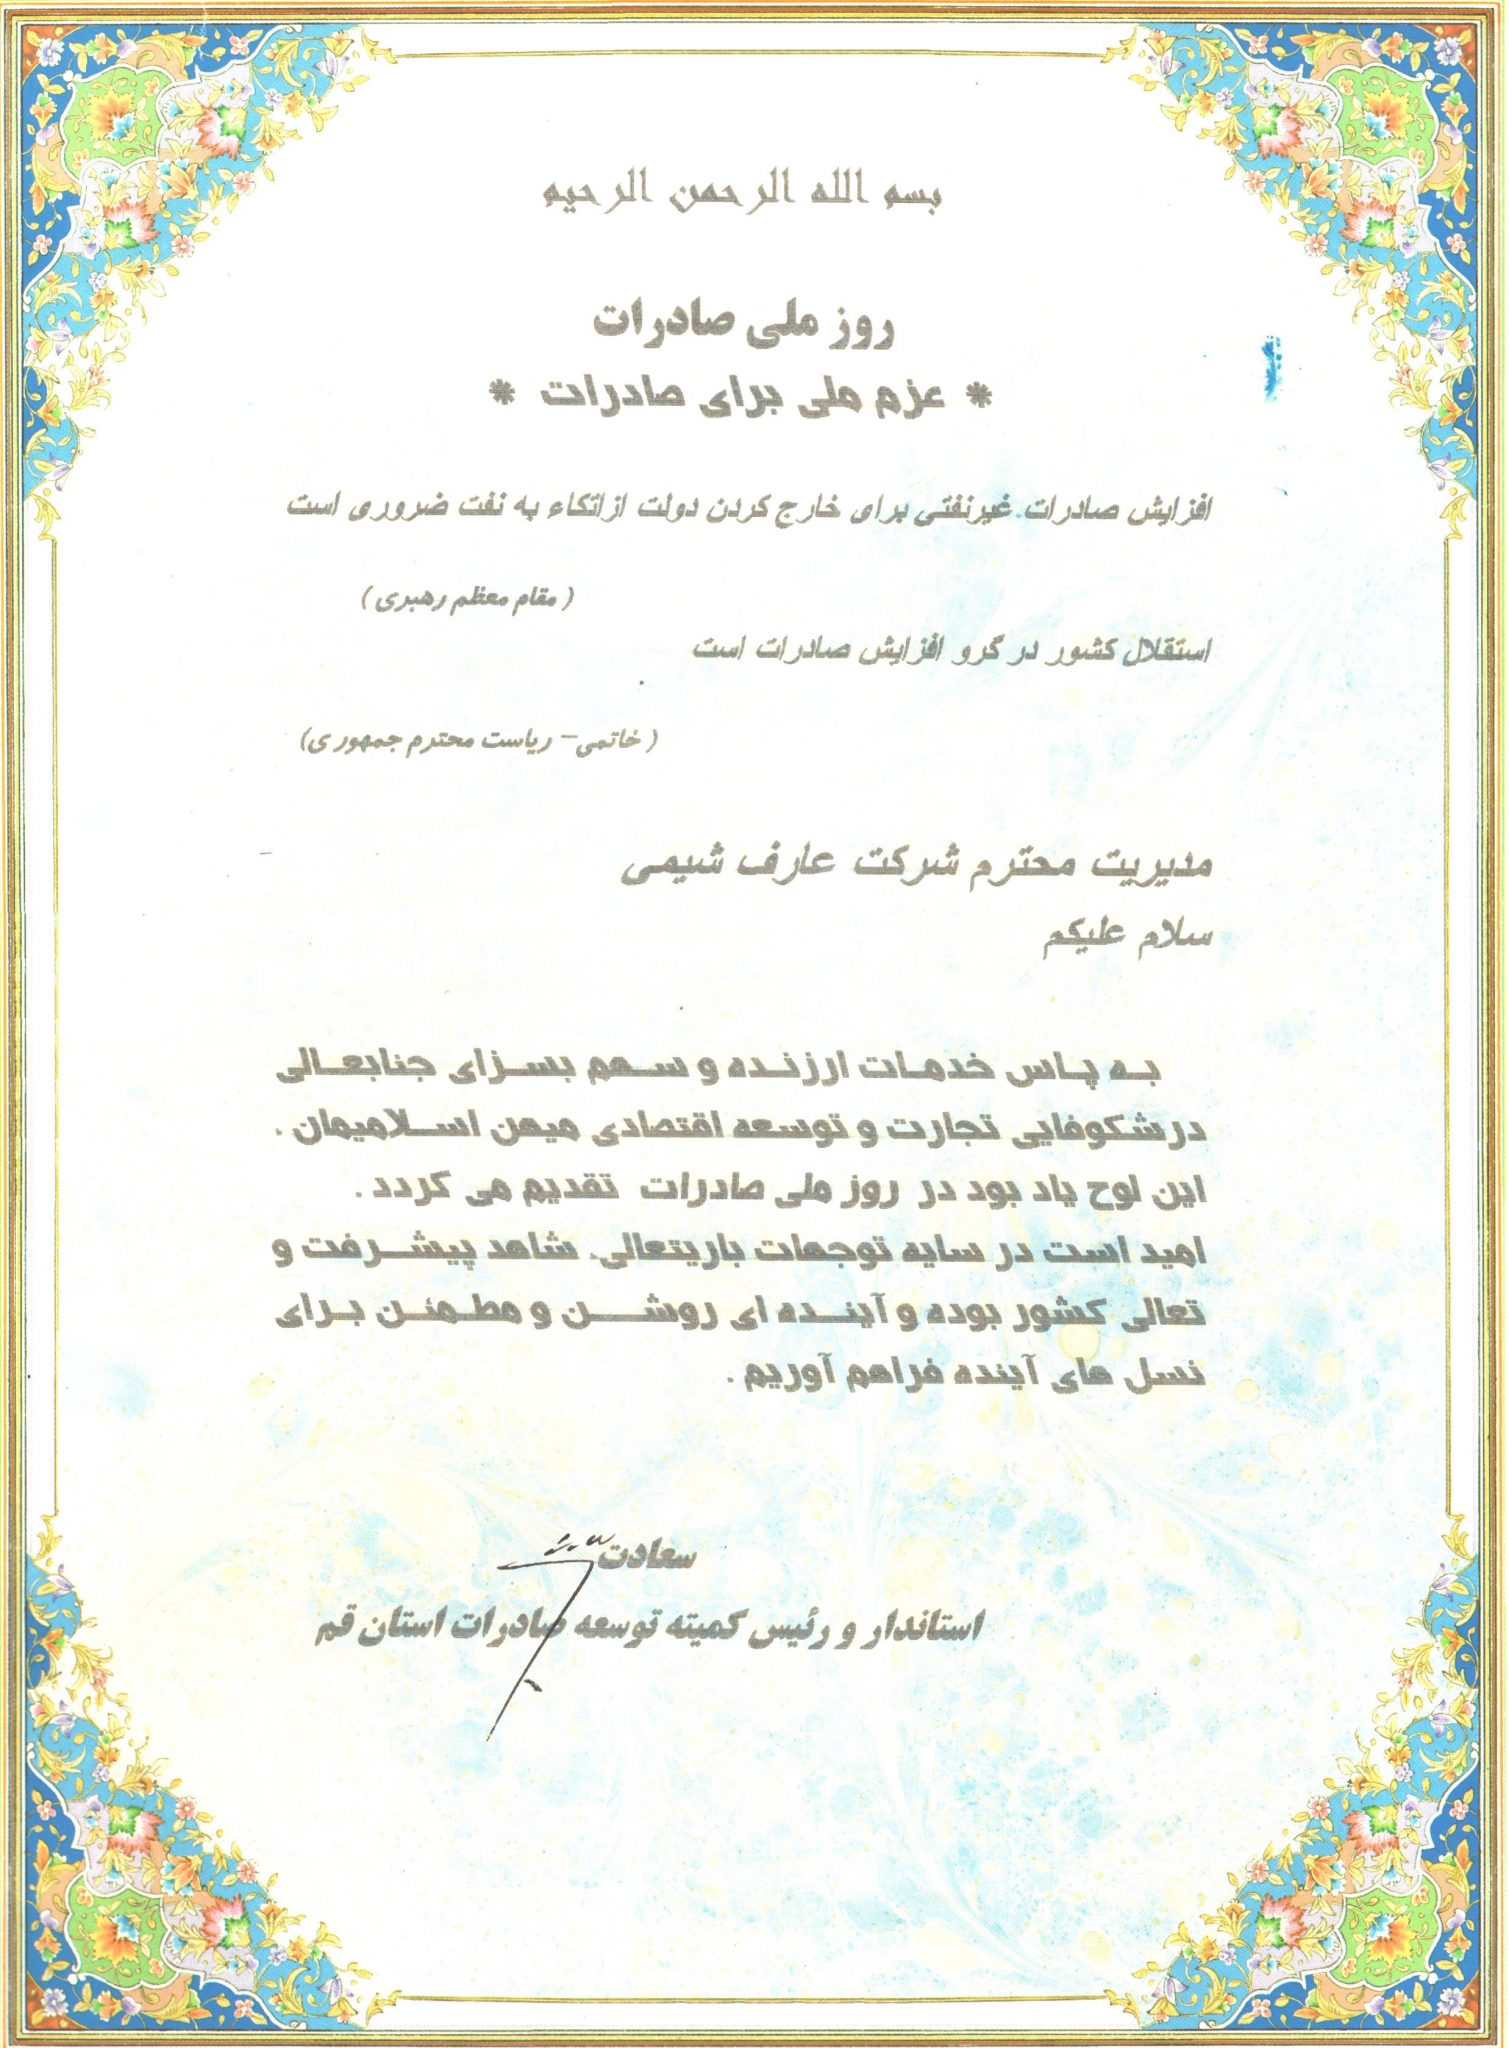 بسم الله الرحمن الرحیم
روز ملی صادرات
* عزم ملی برای صادرات *
افزایش صادرات غیرنفتی برای خارج کردن دولت ازاتکاء به نفت ضروری است
( مقام معظم رهبری )
استقلال کشور در گرو افزایش صادرات است
( خاتمی- ریاست محترم جمهوری)
مدیریت محترم شرکت عارف شیمی
سلام علیکم
به پاس خدمات ارزنده و سهم بسزای جنابعالی
درشکوفایی تجارت و توسعه اقتصادی میهن اسلامیمان .
این لوح یاد بود در روز ملی صادرات تقدیم می گردد .
امید است در سایه توجهات باریتعالی، شاهد پیشرفت و
تعالی کشور بوده و آینده ای روشن و مطمئن برای
نسل های آینده فراهم آوریم .
سعادت
استاندار و رئیس کمیته توسعه صادرات استان قم